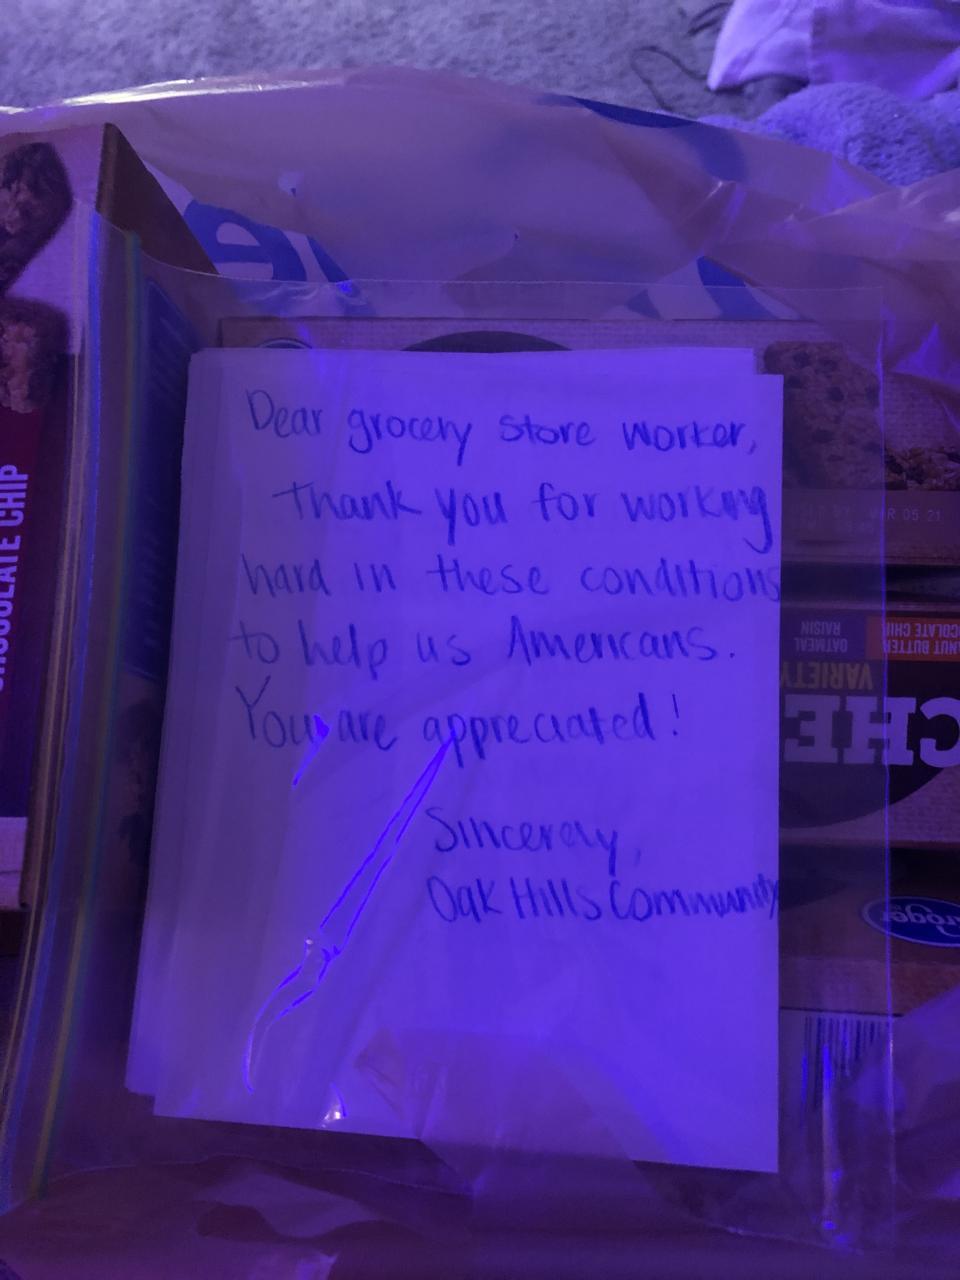 Dear grocery store worker,
Thank you for working
hard in these conditions
to help us Americans.
You are appreciated!
Sincerely,
Oak Hills Community
CHOCOLATE CHIP
05 21
OATMEAL
RAISIN
VARIETY
CHE
Kroger